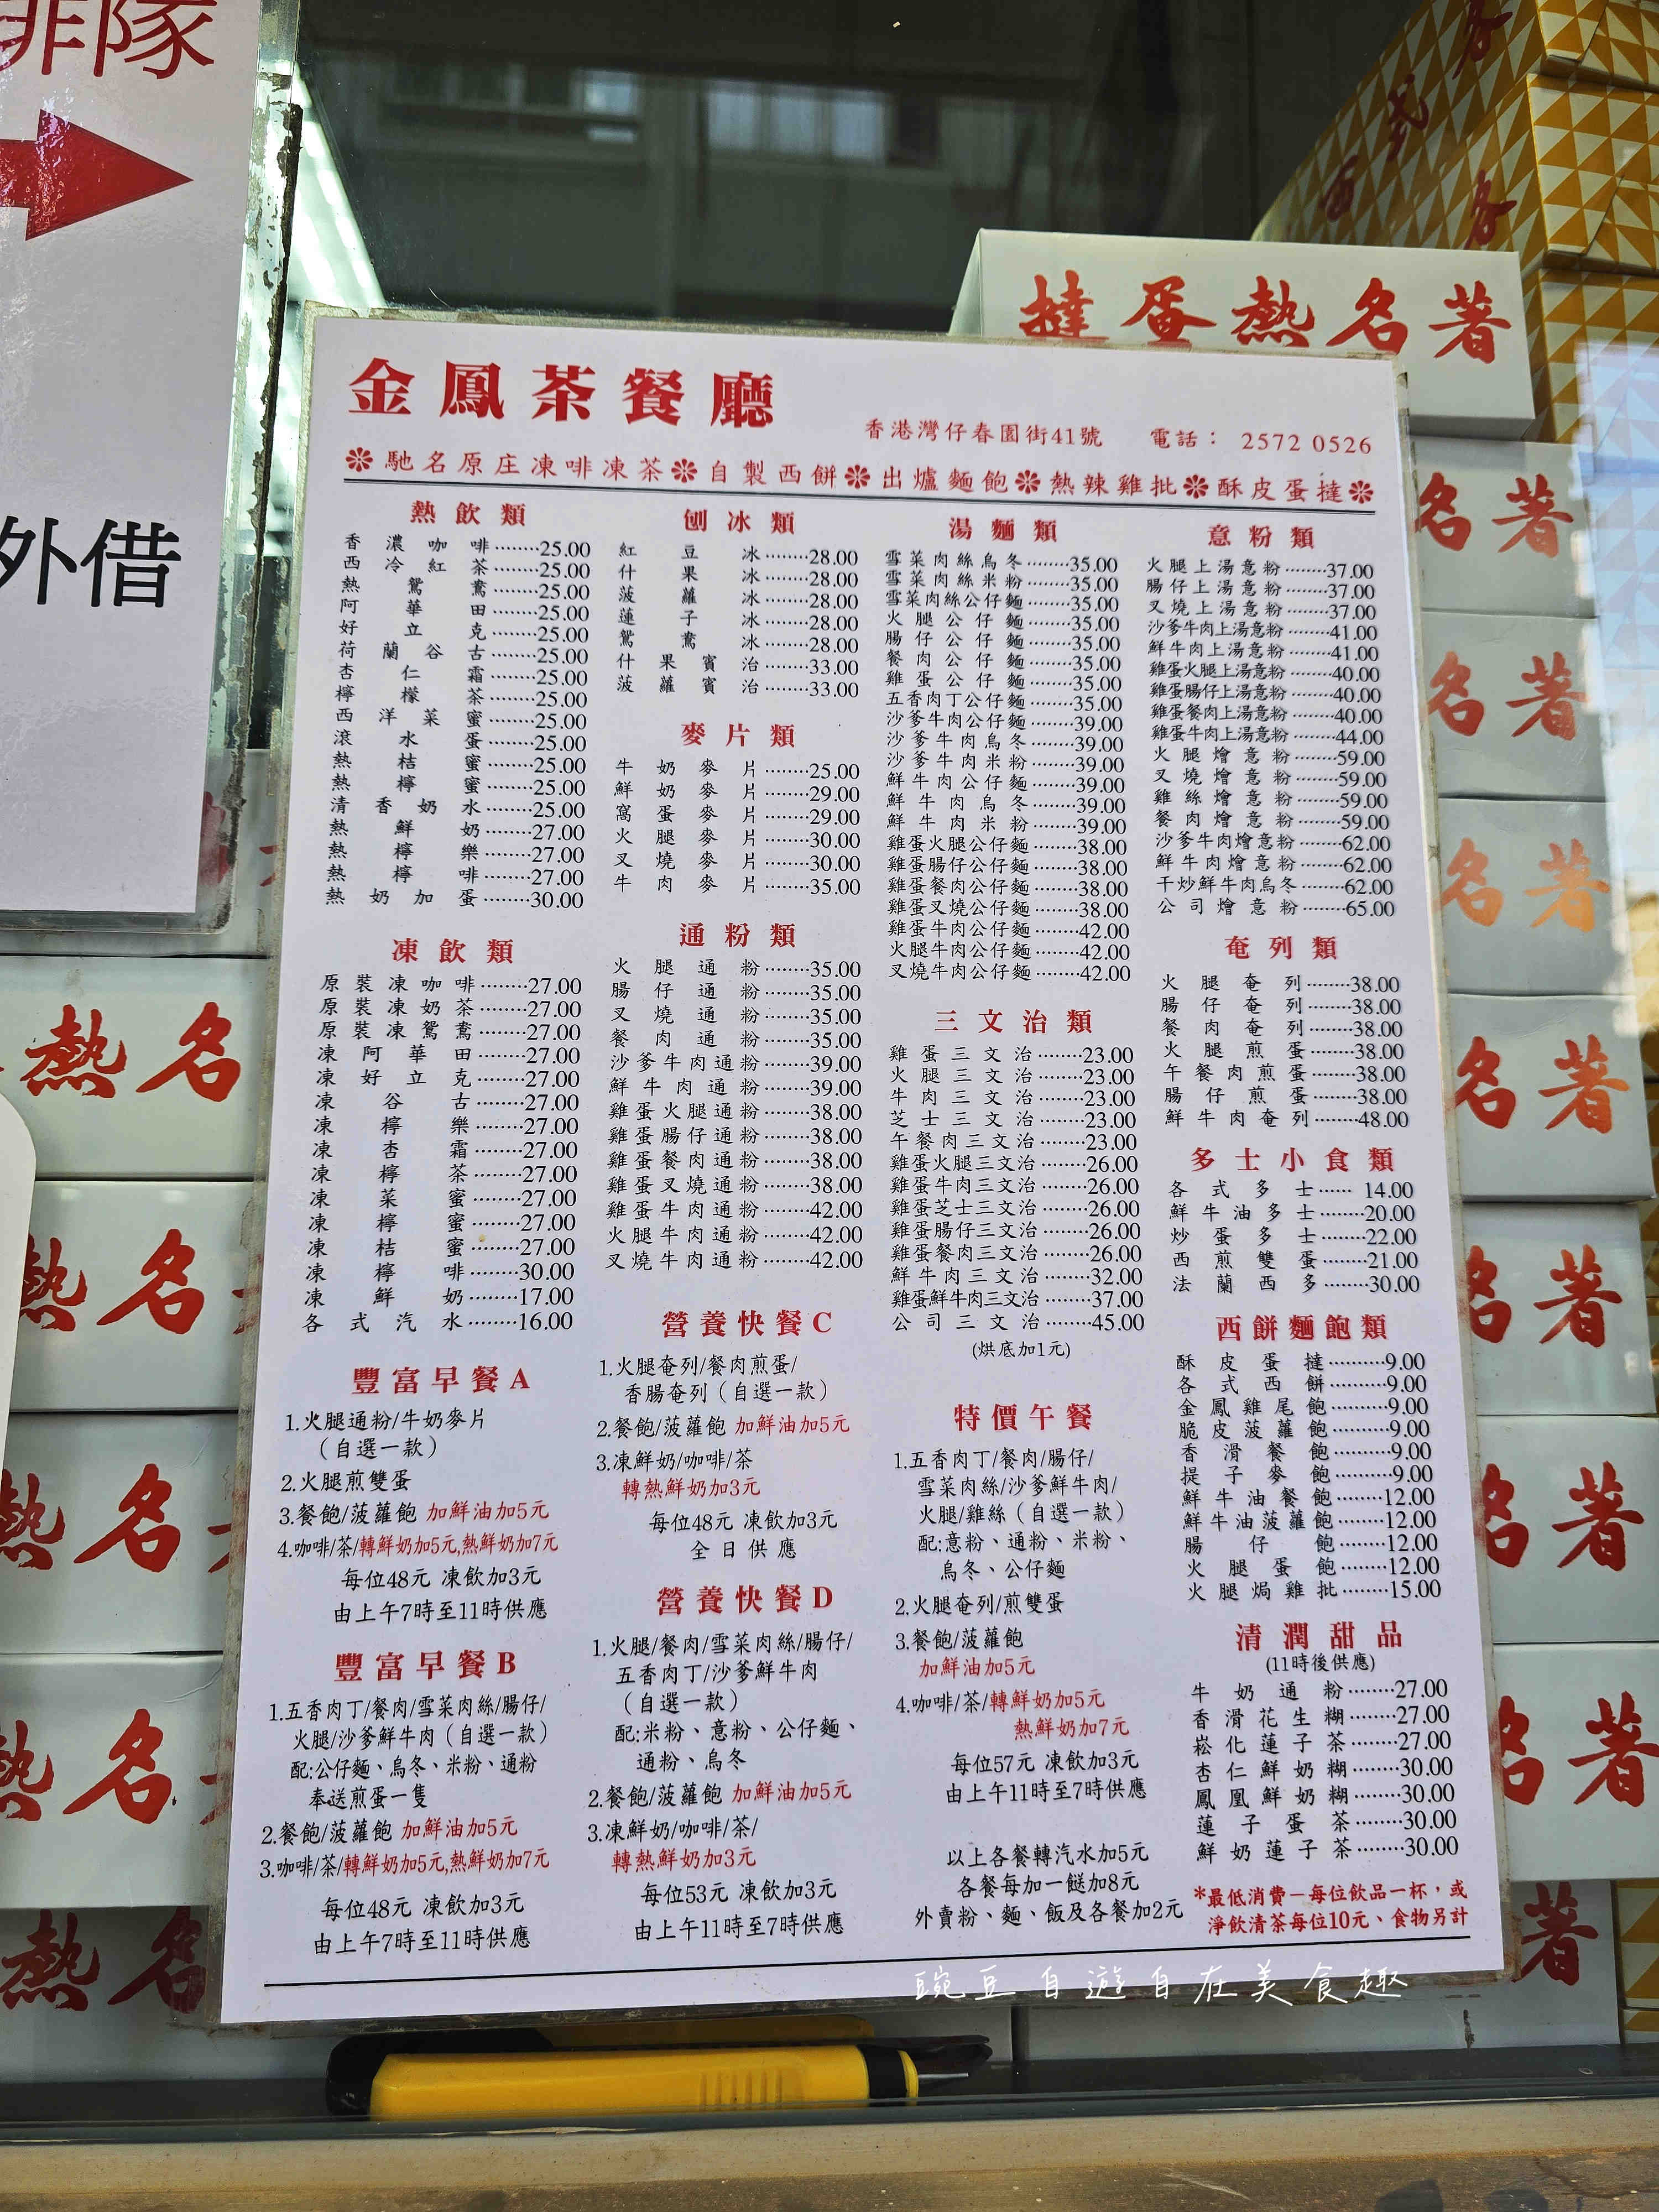 排隊
外借
撻蛋熱名著
金鳳茶餐廳
香港灣仔春園街41號 電話： 2572 0526
❊馳名原庄凍啡凍茶❊自製西餅❊出爐麵飽❊熱辣雞批❊酥皮蛋撻❊
熱飲類
香濃咖啡········25.00
西冷紅茶········25.00
熱鴛鴦········25.00
阿華田········25.00
好立克········25.00
荷蘭谷古········25.00
杏仁霜········25.00
檸檬茶········25.00
西洋菜蜜········25.00
滾水蛋········25.00
熱桔蜜········25.00
熱檸蜜········25.00
清香奶水········25.00
熱鮮奶········27.00
熱檸樂········27.00
熱檸啡········27.00
熱奶加蛋········30.00
凍飲類
原裝凍咖啡········27.00
原裝凍奶茶········27.00
原裝凍鴛鴦········27.00
凍阿華田········27.00
凍好立克········27.00
凍谷古········27.00
凍檸樂········27.00
凍杏霜········27.00
凍檸茶········27.00
凍菜蜜········27.00
凍檸蜜········27.00
凍桔蜜········27.00
凍檸啡········30.00
凍鮮奶········17.00
各式汽水········16.00
豐富早餐A
1.火腿通粉/牛奶麥片
（自選一款）
2.火腿煎雙蛋
3.餐飽/菠蘿飽 加鮮油加5元
4.咖啡/茶/轉鮮奶加5元,熱鮮奶加7元
每位48元 凍飲加3元
由上午7時至11時供應
豐富早餐B
1.五香肉丁/餐肉/雪菜肉絲/腸仔/
火腿/沙爹鮮牛肉（自選一款）
配:公仔麵、烏冬、米粉、通粉
奉送煎蛋一隻
2.餐飽/菠蘿飽 加鮮油加5元
3.咖啡/茶/轉鮮奶加5元,熱鮮奶加7元
每位48元 凍飲加3元
由上午7時至11時供應
刨冰類
紅豆冰········28.00
什果冰········28.00
菠蘿冰········28.00
蓮子冰········28.00
鴛鴦冰········28.00
什果賓治········33.00
菠蘿賓治········33.00
麥片類
牛奶麥片········25.00
鮮奶麥片········29.00
窩蛋麥片········29.00
火腿麥片········30.00
叉燒麥片········30.00
牛肉麥片········35.00
通粉類
火腿通粉········35.00
腸仔通粉········35.00
叉燒通粉········35.00
餐肉通粉········35.00
沙爹牛肉通粉········39.00
鮮牛肉通粉········39.00
雞蛋火腿通粉········38.00
雞蛋腸仔通粉········38.00
雞蛋餐肉通粉········38.00
雞蛋叉燒通粉········38.00
雞蛋牛肉通粉········42.00
火腿牛肉通粉········42.00
叉燒牛肉通粉········42.00
營養快餐C
1.火腿奄列/餐肉煎蛋/
香腸奄列（自選一款）
2.餐飽/菠蘿飽 加鮮油加5元
3.凍鮮奶/咖啡/茶
轉熱鮮奶加3元
每位48元 凍飲加3元
全日供應
營養快餐D
1.火腿/餐肉/雪菜肉絲/腸仔/
五香肉丁/沙爹鮮牛肉
（自選一款）
配:米粉、意粉、公仔麵、
通粉、烏冬
2.餐飽/菠蘿飽 加鮮油加5元
3.凍鮮奶/咖啡/茶/
轉熱鮮奶加3元
每位53元 凍飲加3元
由上午11時至7時供應
湯麵類
雪菜肉絲烏冬········35.00
雪菜肉絲米粉········35.00
雪菜肉絲公仔麵········35.00
火腿公仔麵········35.00
腸仔公仔麵········35.00
餐肉公仔麵········35.00
雞蛋公仔麵········35.00
五香肉丁公仔麵········35.00
沙爹牛肉公仔麵········39.00
沙爹牛肉烏冬········39.00
沙爹牛肉米粉········39.00
鮮牛肉公仔麵········39.00
鮮牛肉烏冬········39.00
鮮牛肉米粉········39.00
雞蛋火腿公仔麵········38.00
雞蛋腸仔公仔麵········38.00
雞蛋餐肉公仔麵········38.00
雞蛋叉燒公仔麵········38.00
雞蛋牛肉公仔麵········42.00
火腿牛肉公仔麵········42.00
叉燒牛肉公仔麵········42.00
三文治類
雞蛋三文治········23.00
火腿三文治········23.00
牛肉三文治········23.00
芝士三文治········23.00
午餐肉三文治········23.00
雞蛋火腿三文治········26.00
雞蛋牛肉三文治········26.00
雞蛋芝士三文治········26.00
雞蛋腸仔三文治········26.00
雞蛋餐肉三文治········26.00
鮮牛肉三文治········32.00
雞蛋鮮牛肉三文治········37.00
公司三文治········45.00
(烘底加1元)
特價午餐
1.五香肉丁/餐肉/腸仔/
雪菜肉絲/沙爹鮮牛肉/
火腿/雞絲（自選一款）
配:意粉、通粉、米粉、
烏冬、公仔麵
2.火腿奄列/煎雙蛋
3.餐飽/菠蘿飽
加鮮油加5元
4.咖啡/茶/轉鮮奶加5元
熱鮮奶加7元
每位57元 凍飲加3元
由上午11時至7時供應
以上各餐轉汽水加5元
各餐每加一餸加8元
外賣粉、麵、飯及各餐加2元
意粉類
火腿上湯意粉········37.00
腸仔上湯意粉········37.00
叉燒上湯意粉········37.00
沙爹牛肉上湯意粉········41.00
鮮牛肉上湯意粉········41.00
雞蛋火腿上湯意粉········40.00
雞蛋腸仔上湯意粉········40.00
雞蛋餐肉上湯意粉········40.00
雞蛋牛肉上湯意粉········44.00
火腿燴意粉········59.00
叉燒燴意粉········59.00
雞絲燴意粉········59.00
餐肉燴意粉········59.00
沙爹牛肉燴意粉········62.00
鮮牛肉燴意粉········62.00
干炒鮮牛肉烏冬········62.00
公司燴意粉········65.00
奄列類
火腿奄列········38.00
腸仔奄列········38.00
餐肉奄列········38.00
火腿煎蛋········38.00
午餐肉煎蛋········38.00
腸仔煎蛋········38.00
鮮牛肉奄列········48.00
多士小食類
各式多士······ 14.00
鮮牛油多士········20.00
炒蛋多士········22.00
西煎雙蛋········21.00
法蘭西多········30.00
西餅麵飽類
酥皮蛋撻··········9.00
各式西餅··········9.00
金鳳雞尾飽··········9.00
脆皮菠蘿飽··········9.00
香滑餐飽··········9.00
提子麥飽··········9.00
鮮牛油餐飽········12.00
鮮牛油菠蘿飽········12.00
腸仔飽········12.00
火腿蛋飽········12.00
火腿焗雞批········15.00
清潤甜品
(11時後供應)
牛奶通粉········27.00
香滑花生糊········27.00
崧化蓮子茶········27.00
杏仁鮮奶糊········30.00
鳳凰鮮奶糊········30.00
蓮子蛋茶········30.00
鮮奶蓮子茶········30.00
*最低消費－每位飲品一杯，或
淨飲清茶每位10元、食物另計
豌豆自遊自在美食趣
名著
名著
名著
名著
名著
名著
名著
著
熱名
熱名
熱名
熱名
熱名